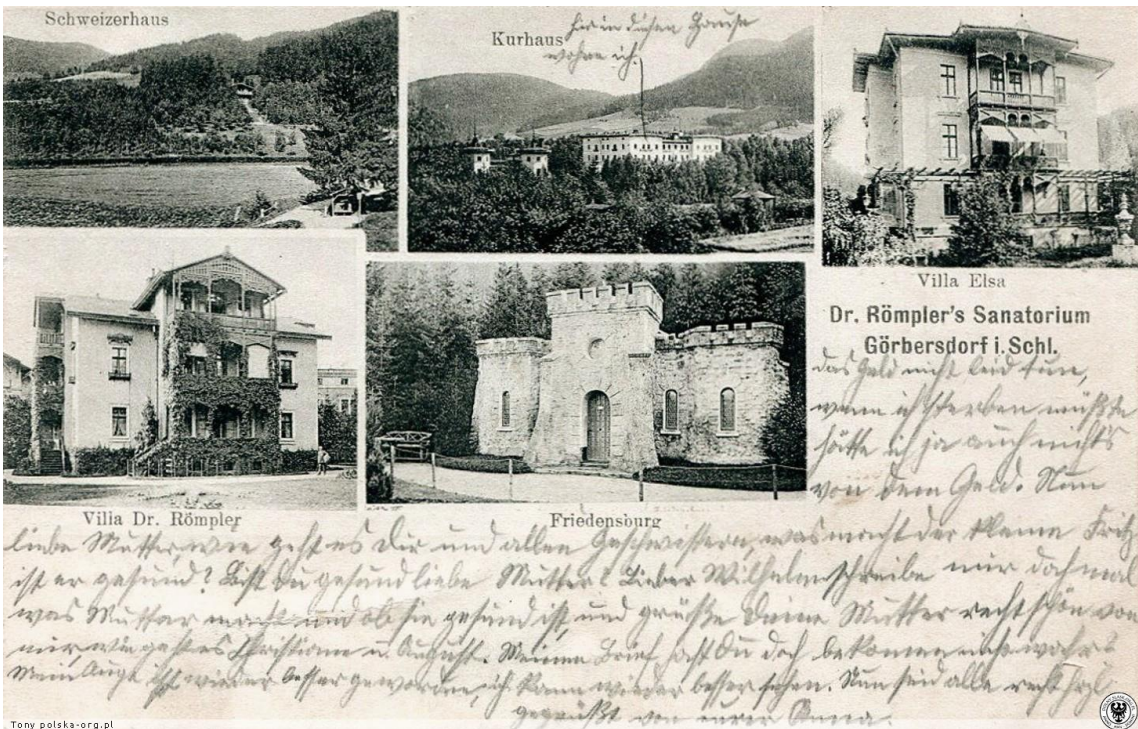 Schweizerhaus
Kurhaus
hier in diesem Hause
wohne ich.
Villa Elsa
Dr. Römpler's Sanatorium
Görbersdorf i. Schl.
das Geld nicht leid tun,
wenn ich sterben müßte
hätte ich ja auch nichts
von dem Geld. Nun
Villa Dr. Römpler
Friedensburg
liebe Mutter wie geht es Dir und allen Geschwistern, was macht der kleine Fritz
ist er gesund? Bist du gesund liebe Mutter? Lieber Wilhelm schreibe mir doch mal
was Mutter macht und ob sie gesund ist, und grüße Deine Mutter recht schön von
mir, wie geht es Christiane u. August. Meinen Brief hast Du doch bekommen nicht wahr?
Mein Auge ist wieder besser geworden, ich kann wieder besser sehen. Nun seid alle recht
gegrüßt von eurer Anna.
Tony polska-org.pl